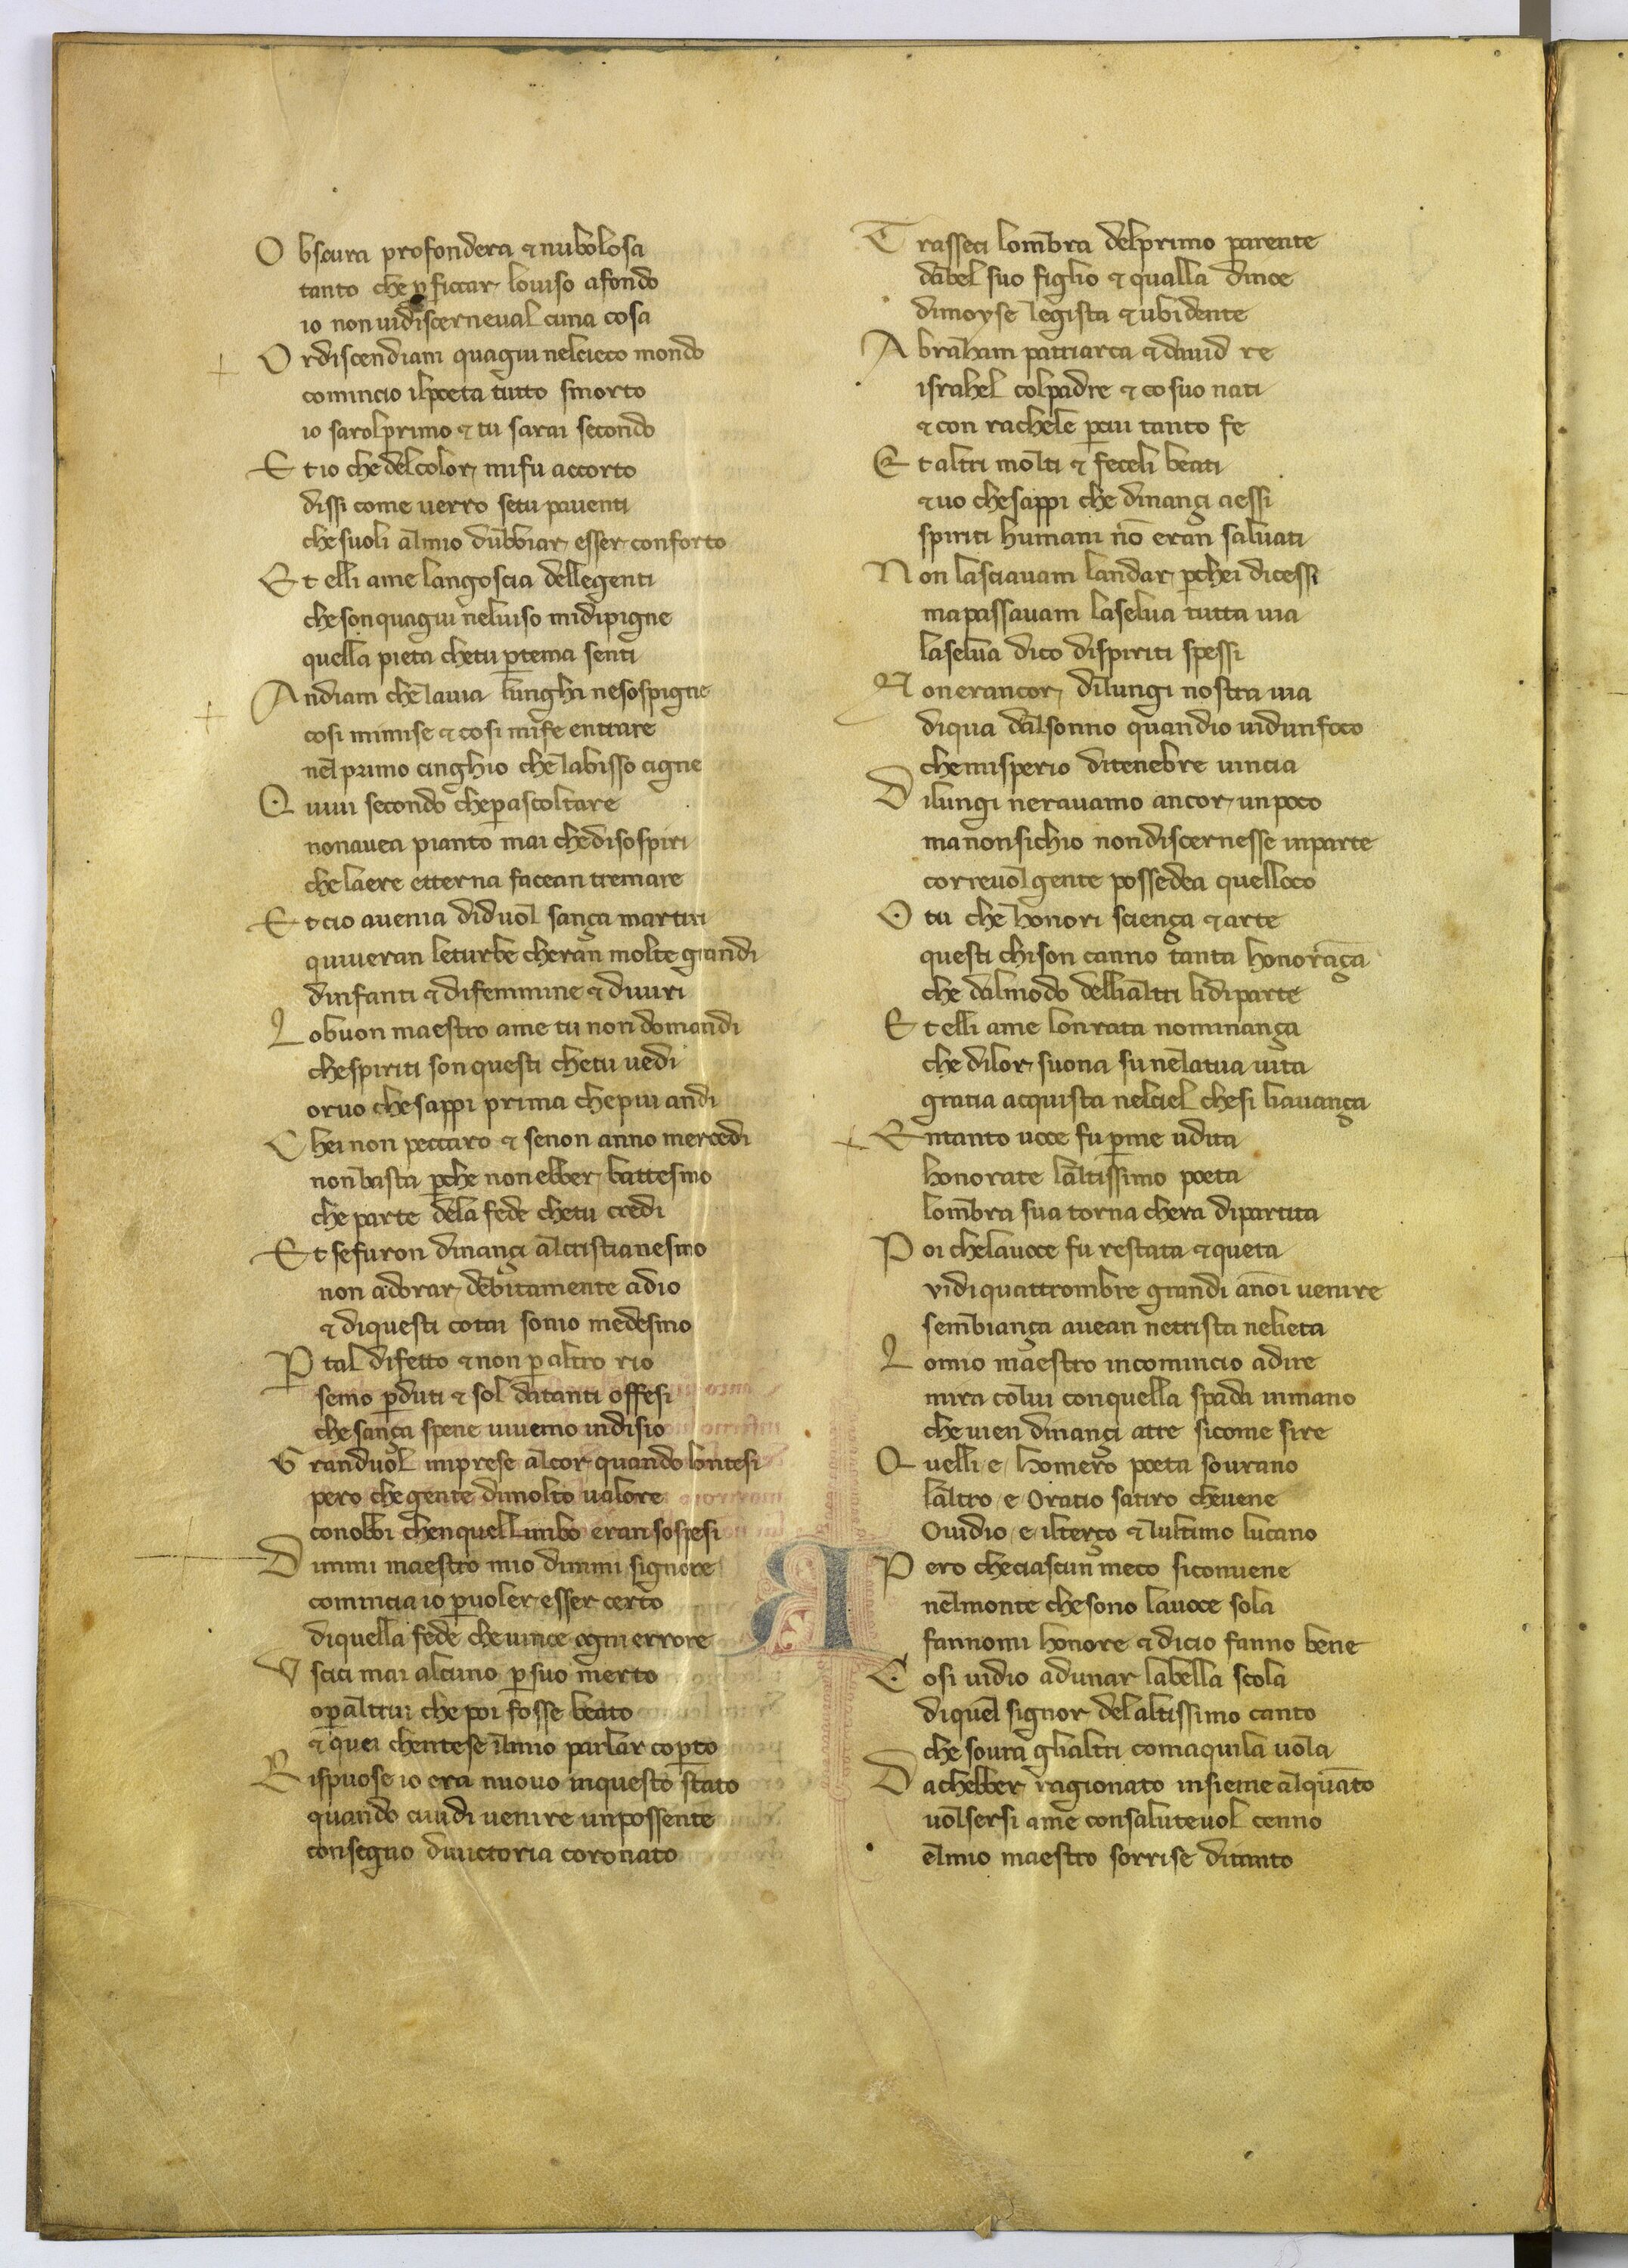 O bscura profondera & nubolosa
tanto che ꝑ ficcar louiso afondo
io nonuidiscerneual cuna cosa
O rdiscendiam quagiu nelcieco mondo
comincio ilpoeta tutto smorto
io sarolprimo & tu sarai secondo
E tio che delcolor mifu accorto
dissi come uerro setu pauenti
chesuoli almio dubbiar esser conforto
E t elli ame langoscia dellegenti
chesonquagiu neluiso midipigne
quella pieta chetu ꝑtema senti
A ndiam chelauia lunghi nesospigne
cosi mimise & cosi mife entrare
nelprimo cinghio chelabisso cigne
Q uiui secondo cheꝑascoltare
nonauea pianto mai chedisospiri
chelaere etterna facean tremare
E t cio auenia diduol sança martiri
quiueran leturbe cheran molte grandi
dinfanti & difemmine & diuiri
L obuon maestro ame tu non domandi
chespiriti son questi chetu uedi
oruo chesappi prima chepiu andi
C hei non peccaro & senon anno mercedi
non basta ꝑche non ebber battesmo
che parte dela fede chetu credi
E t sefuron dinançi alcristianesmo
non adorar debitamente adio
& diquesti cotai sonio medesmo
P tal difetto & non ꝑ altro rio
semo ꝑduti & sol datanti offesi
che sança spene uiuemo indisio
G randuol miprese alcor quando lontesi
pero chegente dimolto ualore
conobbi chenquellimbo eran sospesi
D immi maestro mio dimmi signore
comincia io ꝑuoler esser certo
diquella fede che uince ogni errore
V scici mai alcuno ꝑsuo merto
oꝑaltrui che poi fosse beato
& quei chentese ilmio parlar coꝑto
R ispuose io era nuouo inquesto stato
quando ciuidi uenire unpossente
consegno diuictoria coronato
T rasseci lombra delprimo parente
dabel suo figlio & qualla dinoe
dimoyse legista & ubidente
A braham patriarca & dauid re
israhel colpadre & cosuo nati
& con rachele ꝑcui tanto fe
E t altri molti & feceli beati
& uo chesappi che dinançi aessi
spiriti humani nō eran saluati
N on lasciauam landar ꝑchei dicessi
mapassauam laselua tutta uia
laselua dico dispiriti spessi
N onerancor dilungi nostra uia
diqua dalsonno quandio uidunfoco
chemisperio ditenebre uincia
D ilungi nerauamo ancor unpoco
manonsichio nondiscernesse inparte
correuol gente possedea quelloco
O tu che honori sciença & arte
questi chison canno tanta honorāça
che dalmodo dellialtri lidiparte
E t elli ame lonrata nominança
che dilor suona su nelatua uita
gratia acquista nelciel chesi liauança
E ntanto uoce fu ꝑme udita
honorate laltissimo poeta
lombra sua torna chera dipartita
P oi chelauoce fu restata & queta
vidi quattrombre grandi anoi uenire
sembiança auean netrista nelieta
L omio maestro incomincio adire
mira colui conquella spada inmano
che uien dinançi atre sicome sire
Q uelli e homero poeta sourano
laltro e Oratio satiro cheuene
Ouidio e ilterço & lultimo lucano
P ero checiascun meco siconuene
nelmonte chesono lauoce sola
fannomi honore & dicio fanno bene
C osi uidio adunar labella scola
diquel signor delaltissimo canto
che soura glialtri comaquila uola
D achebber ragionato insieme alquāto
uolsersi ame consaluteuol cenno
elmio maestro sorrise ditanto